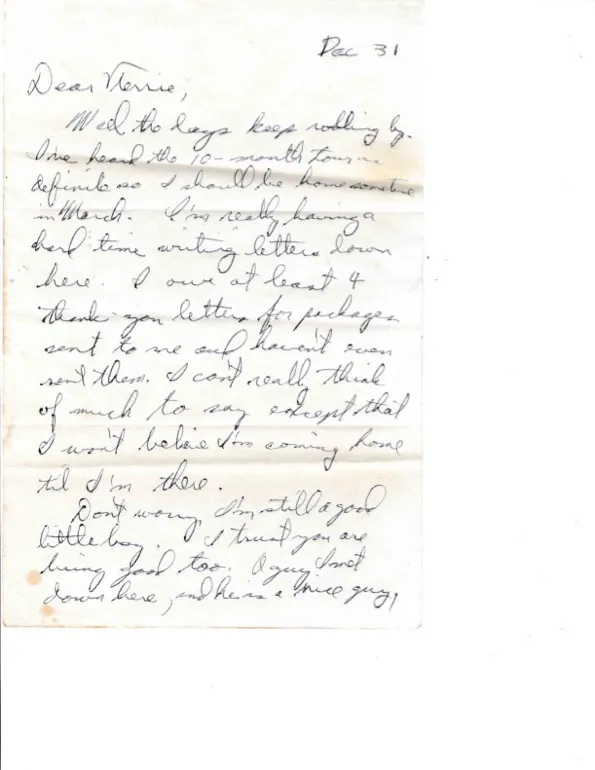 Dec 31
Dear Terrie,
Well the days keep rolling by.
I've heard the 10-month tour is
definite so I should be home sometime
in March. I'm really having a
hard time writing letters down
here. I owe at least 4
thank-you letters for packages
sent to me and haven't even
sent them. I can't really think
of much to say except that
I won't believe I'm coming home
til I'm there.
Don't worry, I'm still a good
little boy. I trust you are
being good too. A guy I met
down here, and he is a nice guy,